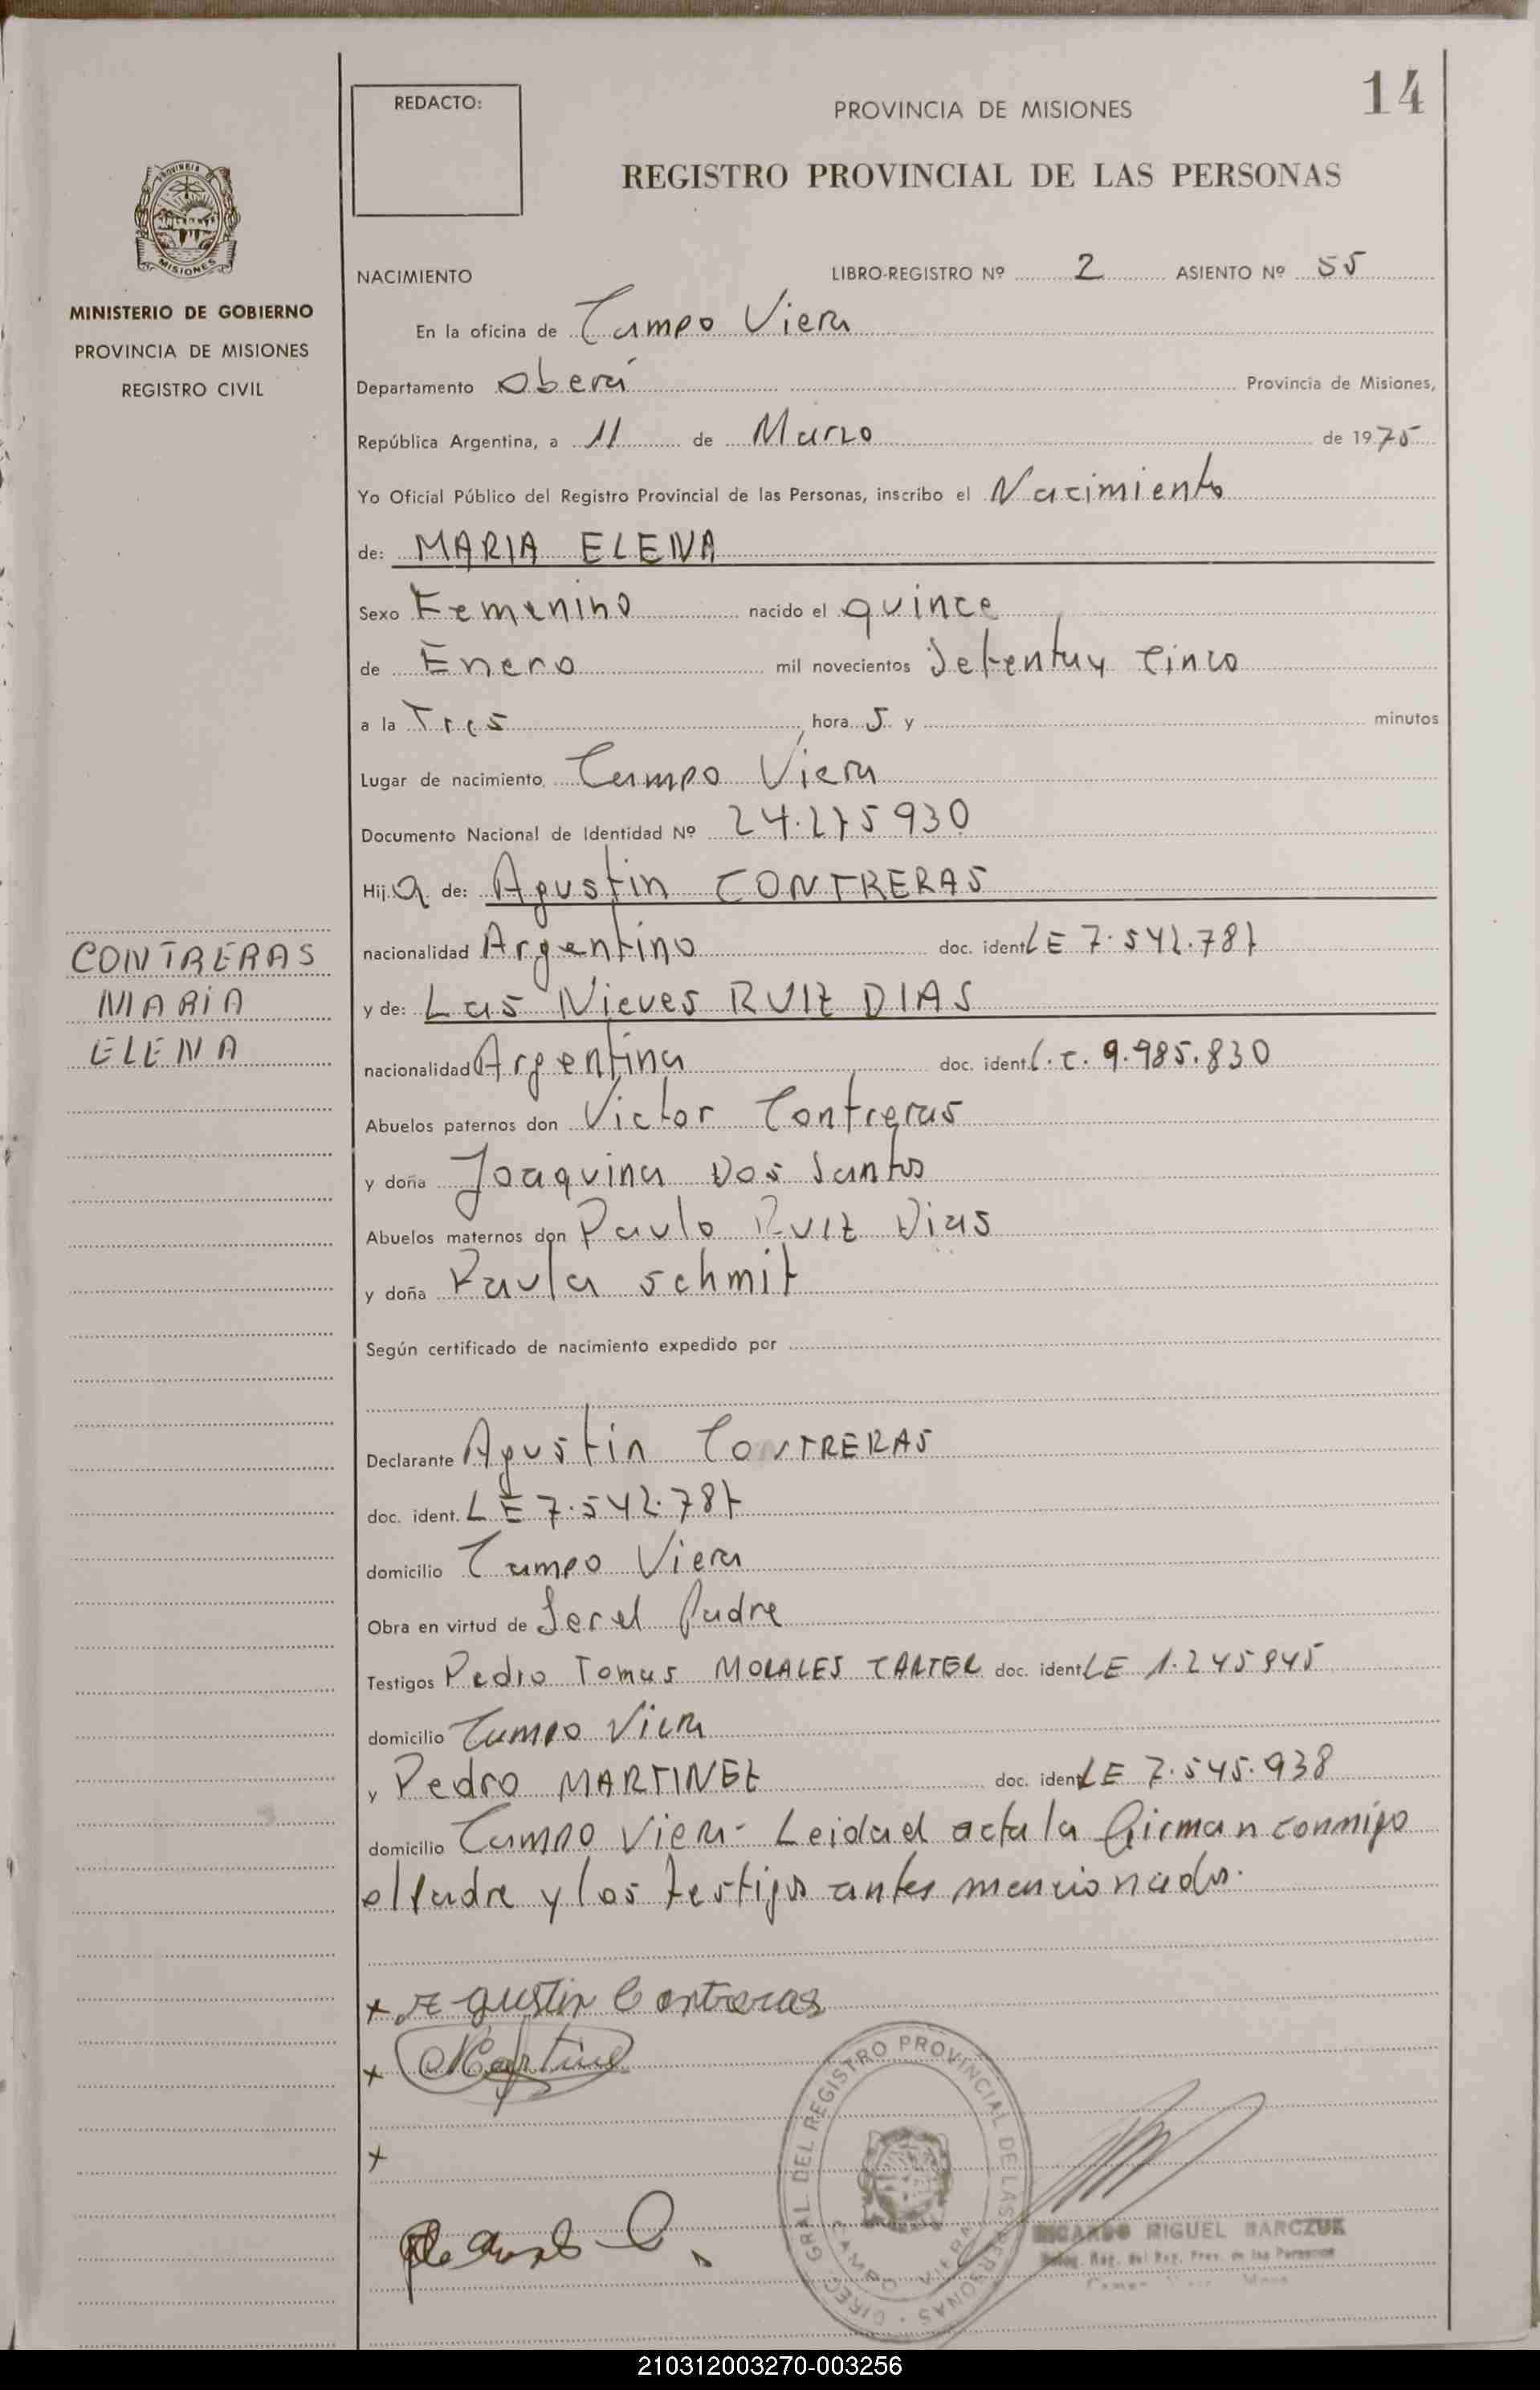 14
REDACTO:
PROVINCIA DE MISIONES
REGISTRO PROVINCIAL DE LAS PERSONAS
PROVINCIA DE
MISIONES
MINISTERIO DE GOBIERNO
PROVINCIA DE MISIONES
REGISTRO CIVIL
NACIMIENTO LIBRO-REGISTRO Nº 2 ASIENTO Nº 55
En la oficina de Campo Viera
Departamento Oberá Provincia de Misiones,
República Argentina, a 11 de Marzo de 1975
Yo Oficial Público del Registro Provincial de las Personas, inscribo el Nacimiento
de: MARIA ELENA
Sexo Femenino nacido el quince
de Enero mil novecientos Setentay Cinco
a la Tres hora S y minutos
Lugar de nacimiento Campo Viera
Documento Nacional de Identidad Nº 24.275930
Hija de: Agustin CONTRERAS
nacionalidad Argentino doc. ident LE 7.542.787
y de: Las Nieves RUIZ DIAS
nacionalidad Argentina doc. ident L.C. 9.985.830
CONTRERAS
MARIA
ELENA
Abuelos paternos don Victor Contreras
y doña Joaquina Dos Santos
Abuelos maternos don Paulo Ruiz Dias
y doña Paula Schmit
Según certificado de nacimiento expedido por
Declarante Agustin CONTRERAS
doc. ident. LE 7.542.787
domicilio Campo Viera
Obra en virtud de Ser el Padre
Testigos Pedro Tomas MORALES CARTER doc. ident LE 1.245945
domicilio Campo Viera
y Pedro MARTINEZ doc. ident LE 7.545.938
domicilio Campo Viera- Leida el acta la firman conmigo
el Padre y los testigos antes mencionados.
x Agustin Contreras
x Martinez
x
DIREC. GRAL DEL REGISTRO PROVINCIAL DE LAS PERSONAS
CAMPO VIERA
RICARDO MIGUEL BARCZUK
Reg. del Reg. Prov. de las Personas
210312003270-003256